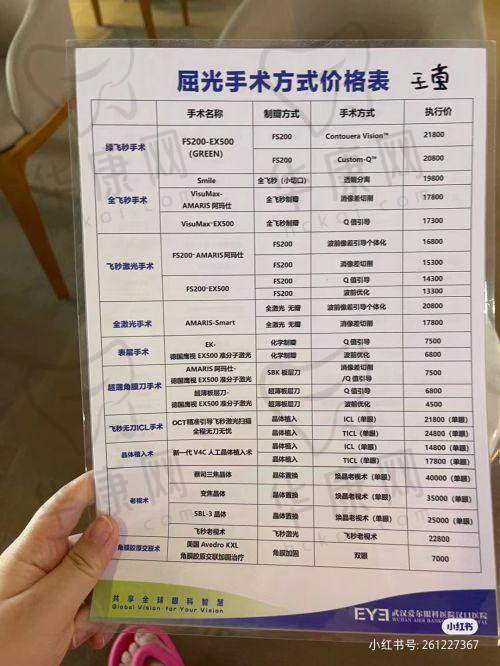 屈光手术方式价格表
手术名称 制瓣方式 手术方式 执行价
绿飞秒手术 FS200-EX500 (GREEN) FS200 Contouera Vision™ 21800
FS200 Custom-Q™ 20800
全飞秒手术 Smile 全飞秒(小切口) 透镜分离 19800
VisuMax-AMARIS阿玛仕 全飞秒制瓣 消像差切削 17800
VisuMax-EX500 全飞秒制瓣 Q值引导 17300
飞秒激光手术 FS200-AMARIS阿玛仕 FS200 波前像差引导个体化 16800
FS200 消像差切削 15300
FS200-EX500 FS200 Q值引导 14300
FS200 波前优化 13300
全激光手术 AMARIS-Smart 全激光 无瓣 波前像差引导个体化 20800
全激光 无瓣 消像差切削 17800
表层手术 EK-德国鹰视EX500准分子激光 化学制瓣 Q值引导 7500
化学制瓣 波前优化 6800
超薄角膜刀手术 AMARIS阿玛仕-德国鹰视EX500准分子激光 SBK板层刀 消像差切削/Q值引导 7500
超薄板层刀-德国鹰视EX500准分子激光 超薄板层刀 Q值引导 6800
超薄板层刀 波前优化 4500
飞秒无刀ICL手术 OCT精准引导飞秒激光扫描全程无刀无忧 晶体植入 ICL(单眼) 21800(单眼)
晶体植入 TICL(单眼) 24800(单眼)
晶体植入术 新一代V4C人工晶体植入术 晶体植入 ICL(单眼) 14800(单眼)
晶体植入 TICL(单眼) 17800(单眼)
老视术 蔡司三焦晶体 晶体置换 焕晶老视术(单眼) 40000(单眼)
变焦晶体 晶体置换 焕晶老视术(单眼) 35000(单眼)
SBL-3晶体 晶体置换 焕晶老视术(单眼) 25000(单眼)
飞秒老视术 飞秒激光 飞秒老视术 22800
角膜胶原交联术 美国Avedro KXL角膜胶原交联加固治疗 角膜加固 双眼 7000
共享全球眼科智慧
Global Vision for Your Vision
EYE 武汉爱尔眼科医院汉口医院
小红书
小红书号: 261227367